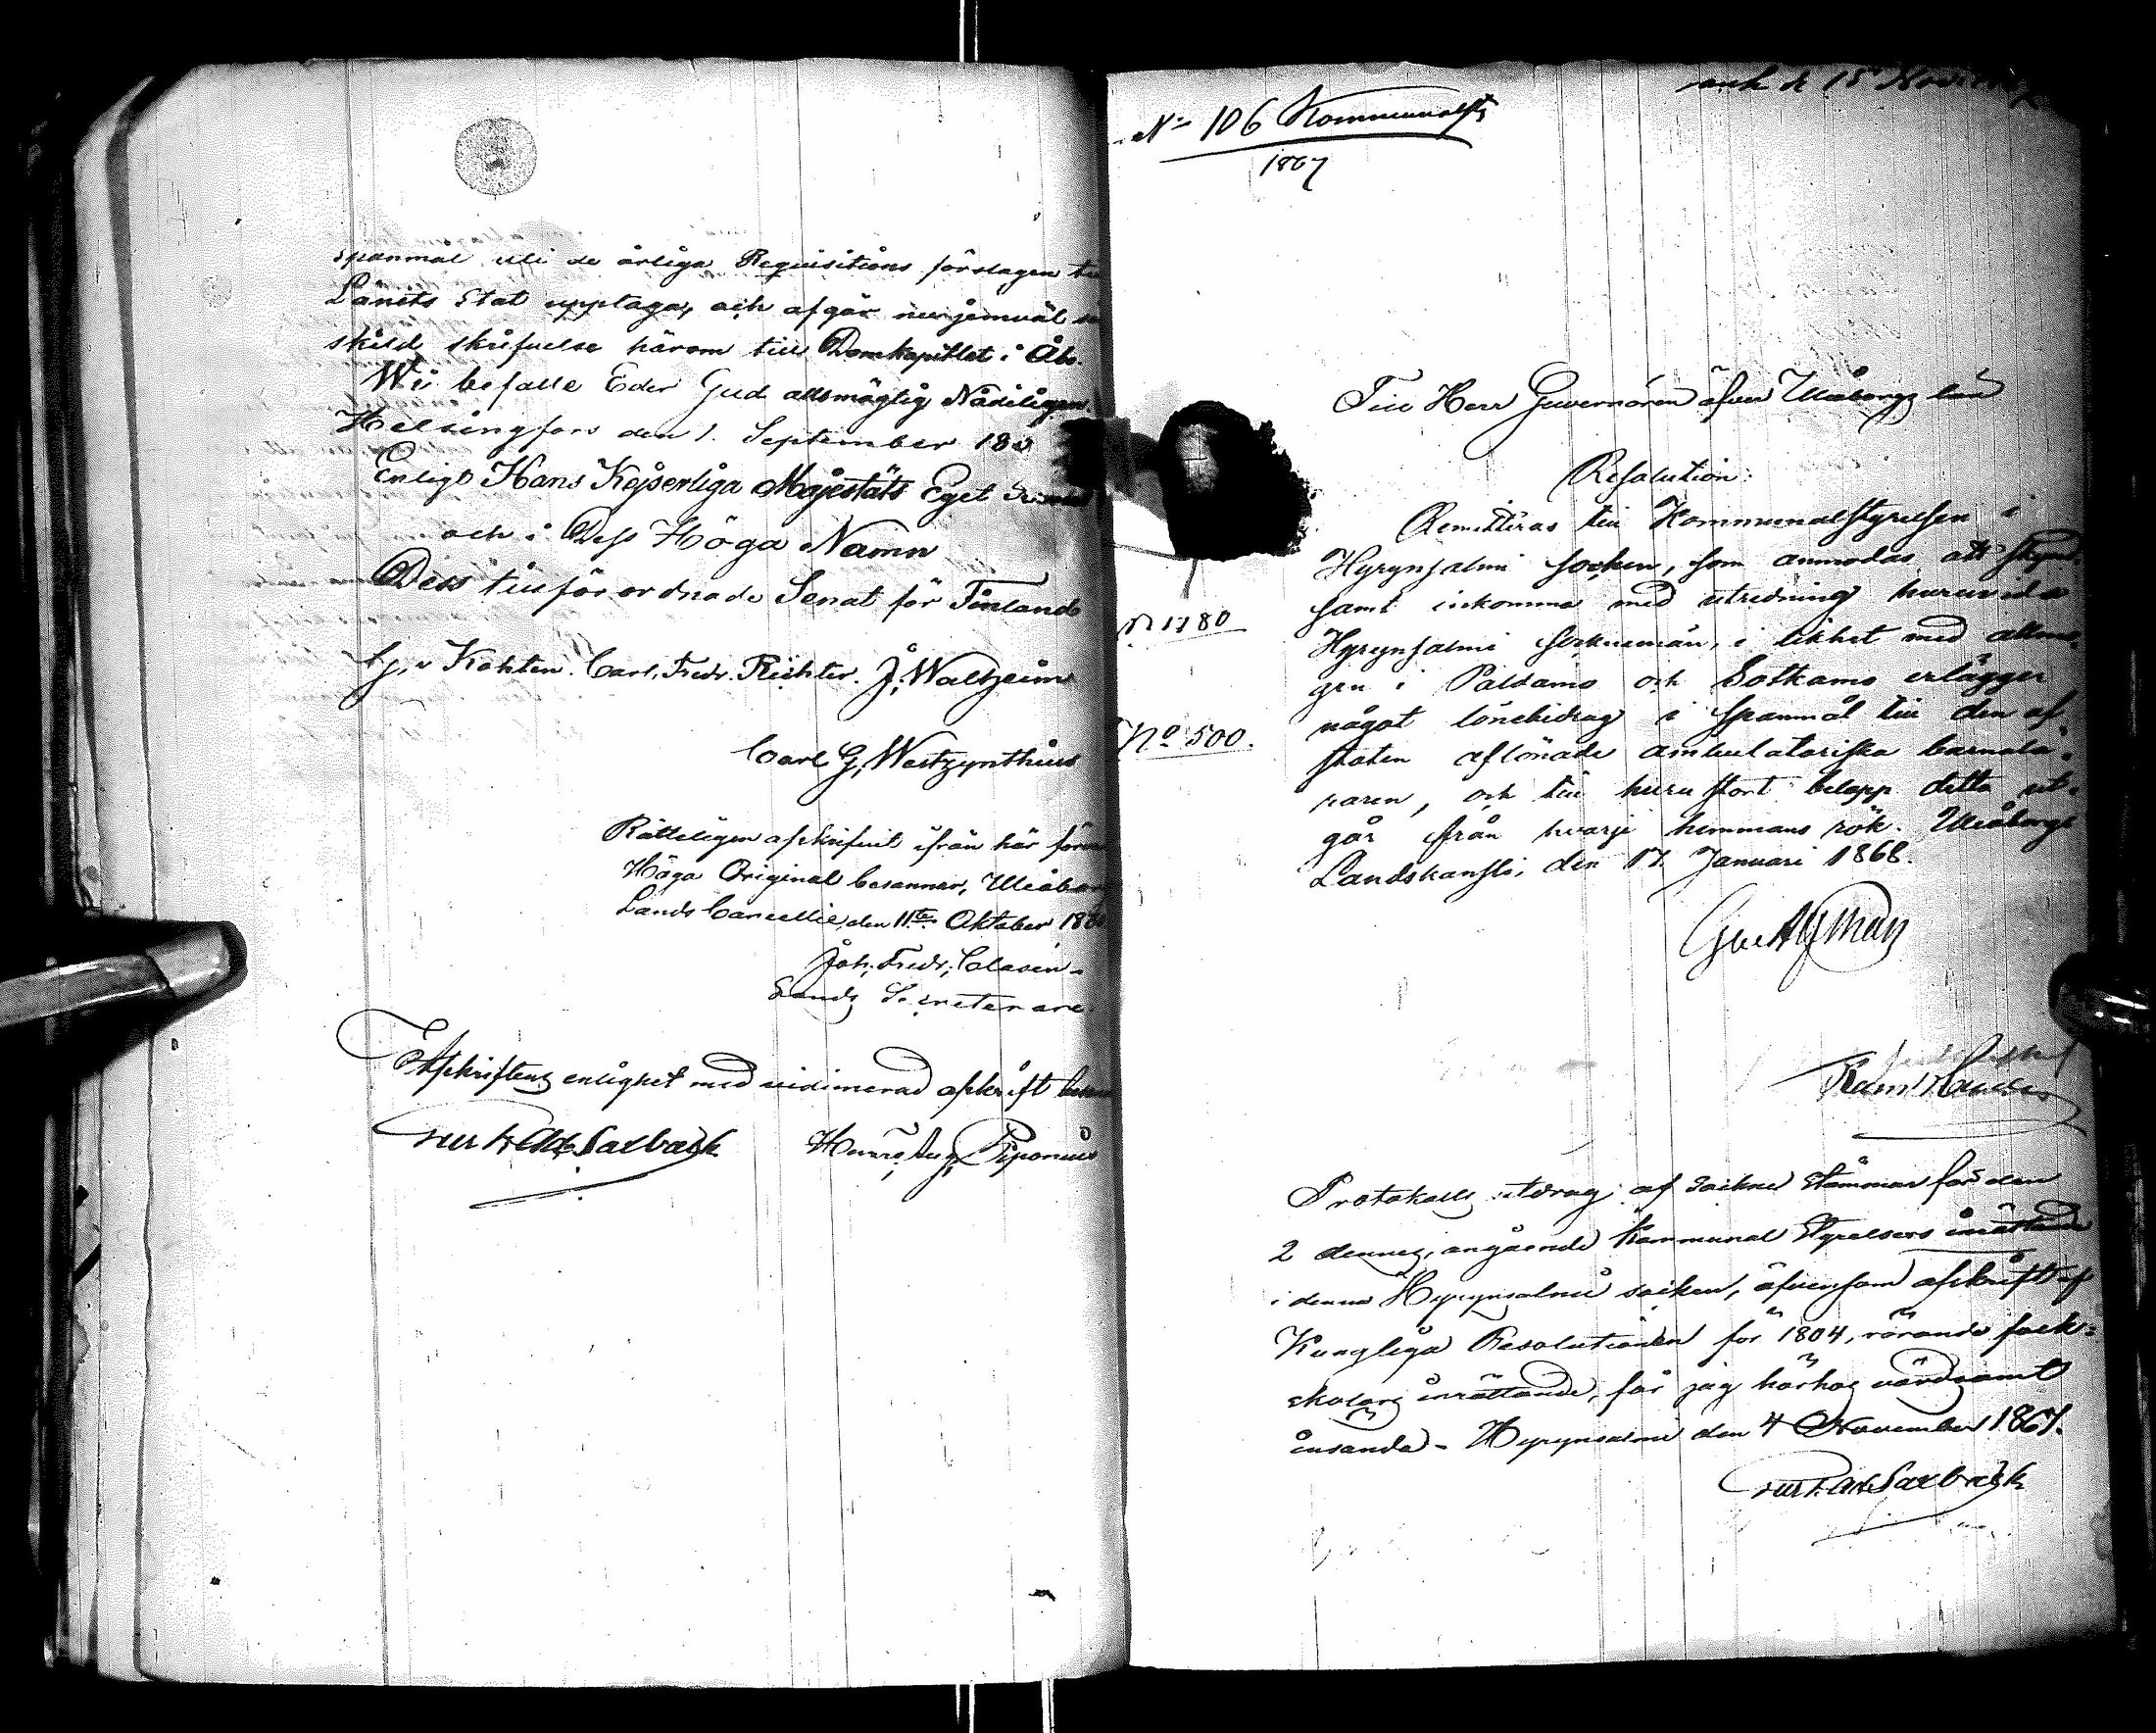 spanmål uti de årliga Requisitions förslagen
Länets Stat upptaga, och afgår nu jemväl
skild skrifvelse härom till Domkapitlet i Åbo.
Wi befalle Eder Gud allsmägtig Nådeligen
Helsingfors den 1. September
Enligt Hans Kejserliga Majestäts Eget
och i Dess Höga Namn
Dess tillförordnade Senat för Finland
Carl. Fredr. Richter. J. Walheim
Carl G. Westzynthius
Rätteligen afskrifvit ifrån här
Höga Original besannar, Uleåborgs
Lands Cancellie, den 11te Oktober
Joh. Fredr.
Lands Secreterare.
Afskriftens enlighet med vidimerad afskrift
Saxbäck Piponius
No 106 Kommunalst
1867
Till Herr Guvernören öfver Uleåborgs län
Resolution:
Remitteras till Kommunalstyrelsen i
Hyrynsalmi socken, som anmodas att skynd-
samt inkomma med utredning huruvida
N 1780
Hyrynsalmi socknemän, i likhet med allmo-
gen i Paldamo och Sotkamo erlägger
något lönebidrag i spanmål till den af
No 500.
staten aflönade ambulatoriska barnalä-
raren, och till huru stort belopp detta ut-
går från hvarje hemmans rök. Uleåborgs
Landskansli, den 17 Januari 1868.
Protokolls utdrag af sockne stämman för den
2 dennes, angående Kommunal Styrelsens inrättande
i denna Hyrynsalmi socken, äfvensom afskrift af
Kungliga Resolutionen för 1804, rörande folk-
skolans inrättande, får jag härhos vördsamt
insända - Hyrynsalmi den 4 November 1867.
Saxbäck